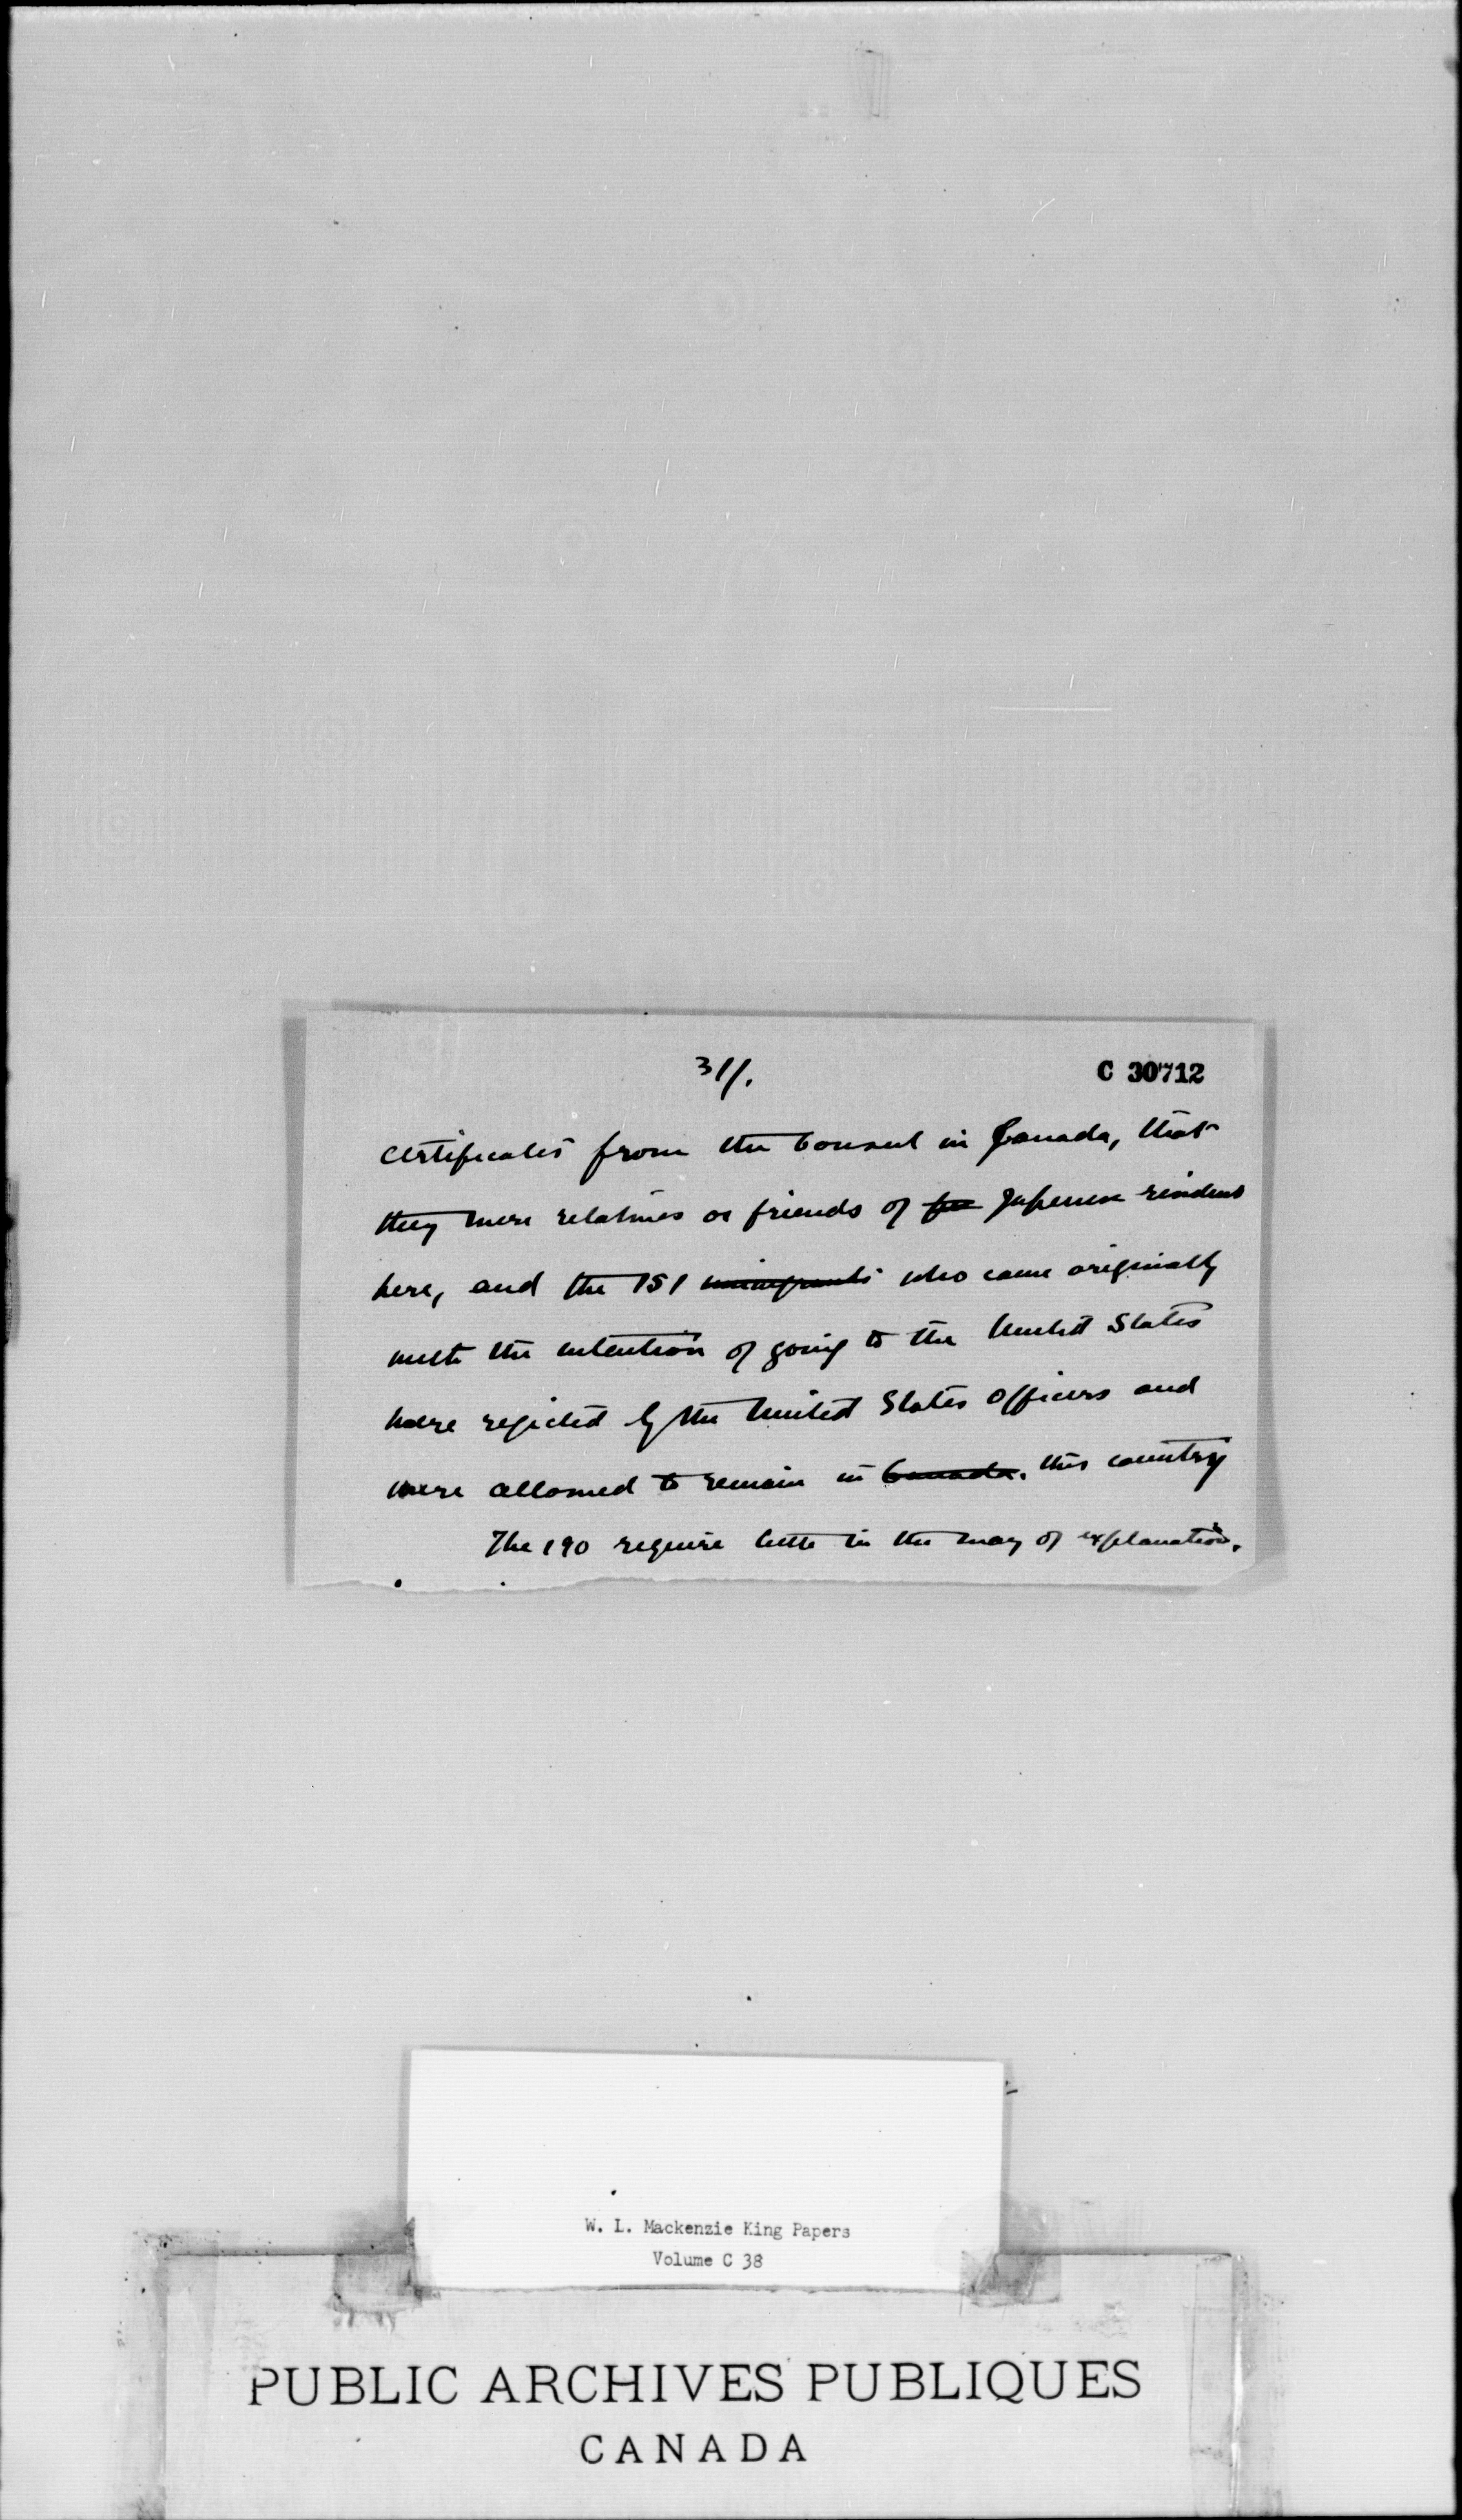 31/.
C 30712
certificates from the Consul in Canada, that
they were relatives or friends of Japanese residents
here, and the 151 immigrants who came originally
with the intention of going to the United States
were rejected by the United States Officers and
were allowed to remain in Canada. this country
The 190 require little in the way of explanation.
W. L. Mackenzie King Papers
Volume C 38
PUBLIC ARCHIVES PUBLIQUES
CANADA